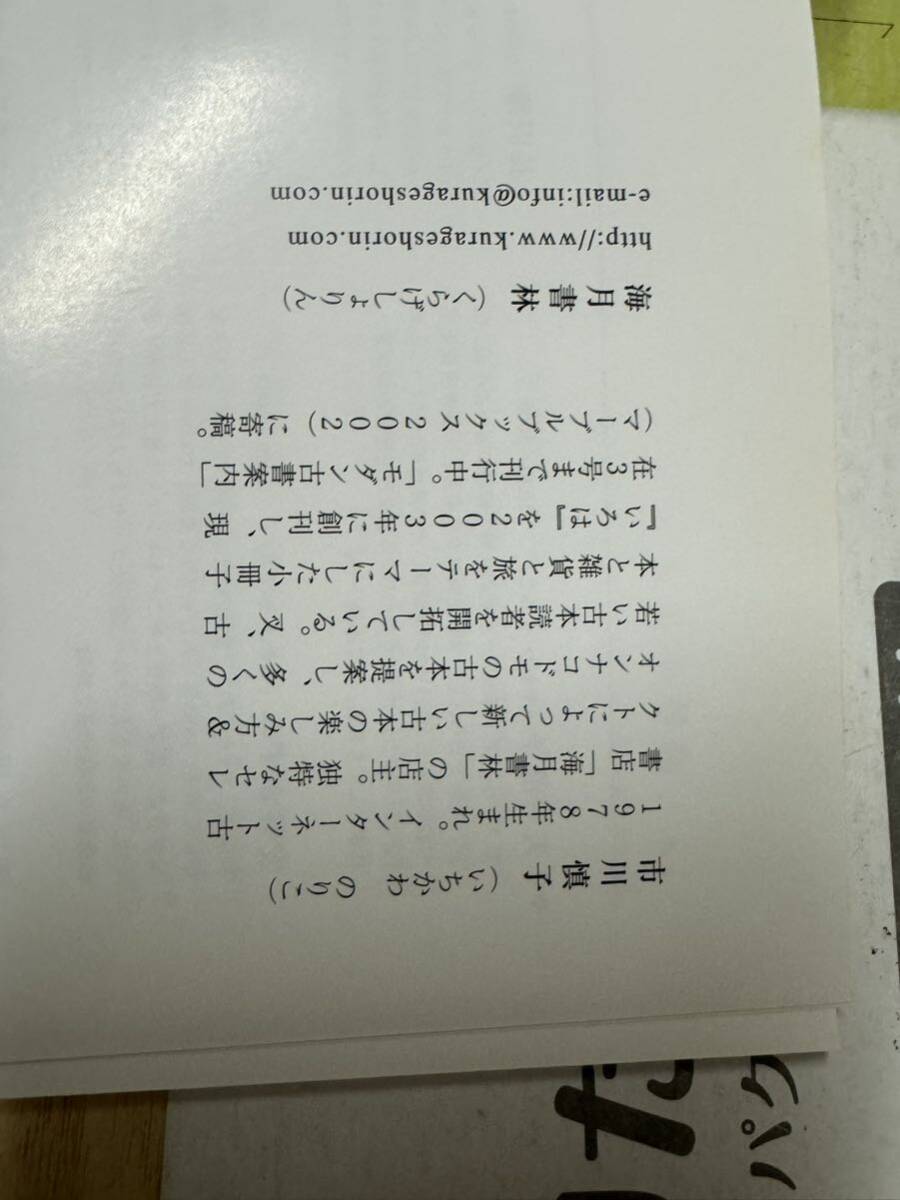 市川 慎子（いちかわ のりこ）
1978年生まれ。インターネット古
書店「海月書林」の店主。独特なセレ
クトによって新しい古本の楽しみ方&
オンナコドモの古本を提案し、多くの
若い古本読者を開拓している。又、古
本と雑貨と旅をテーマにした小冊子
『いろは』を2003年に創刊し、現
在3号まで刊行中。「モダン古書案内」
（マーブルブックス 2002）に寄稿。
海月書林（くらげしょりん）
http://www.kurageshorin.com
e-mail:info@kurageshorin.com